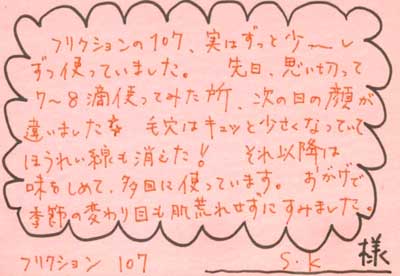 フリクションの107、実はずっと少〜し
ずつ使っていました。 先日、思い切って
7〜8滴使ってみた所、次の日の顔が
違いました☆ 毛穴はキュッと少さくなっていて
ほうれい線も消えた! それ以降は
味をしめて、多目に使っています。おかげで
季節の変わり目も肌荒れせずにすみました。
フリクション 107 S.K 様